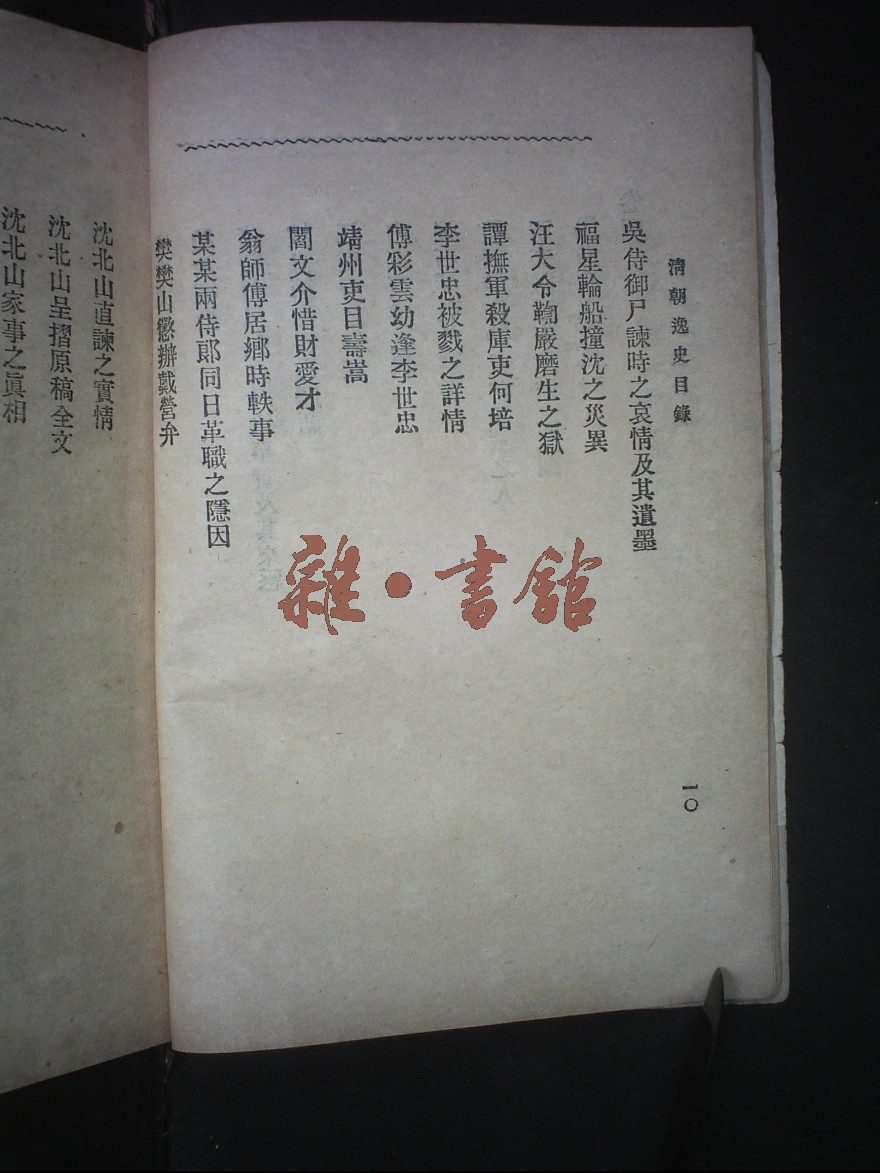 清朝逸史目錄
吳侍御尸諫時之哀情及其遺墨
福星輪船撞沈之災異
汪大令鞫嚴磨生之獄
譚撫軍殺庫吏何培
李世忠被戮之詳情
傅彩雲幼逢李世忠
靖州吏目壽嵩
閻文介惜財愛才
翁師傅居鄉時軼事
某某兩侍郎同日革職之隱因
樊樊山懲辦戴營弁
一〇
沈北山直諫之實情
沈北山呈摺原稿全文
沈北山家事之眞相
雜·書館